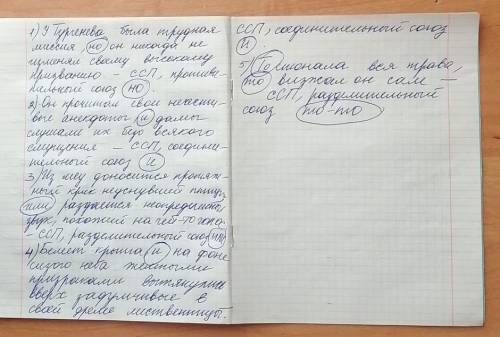 1) У Тургенева была трудная
миссия, но он никогда не
изменял своему высокому
призванию – ССП, противи-
тельный союз но.
2) Он прочитал свои
анекдоты и дамы
слушали их безо всякого
смущения – ССП, соедини-
тельный союз и
3) Из лесу доносится
крик неуснувшей птицы,
или раздается неопределенный
звук, похожий на чей-то голос
- ССП, разделительный союз или
4) Белеет крыша и на фоне
сизого неба
призраками вытянулись
вверх задумчивые в
своей дреме лиственницы.
ССП, соединительный союз
и.
5) То стонала вся трава,
то визжал он сам –
ССП, разделительный
союз то-то